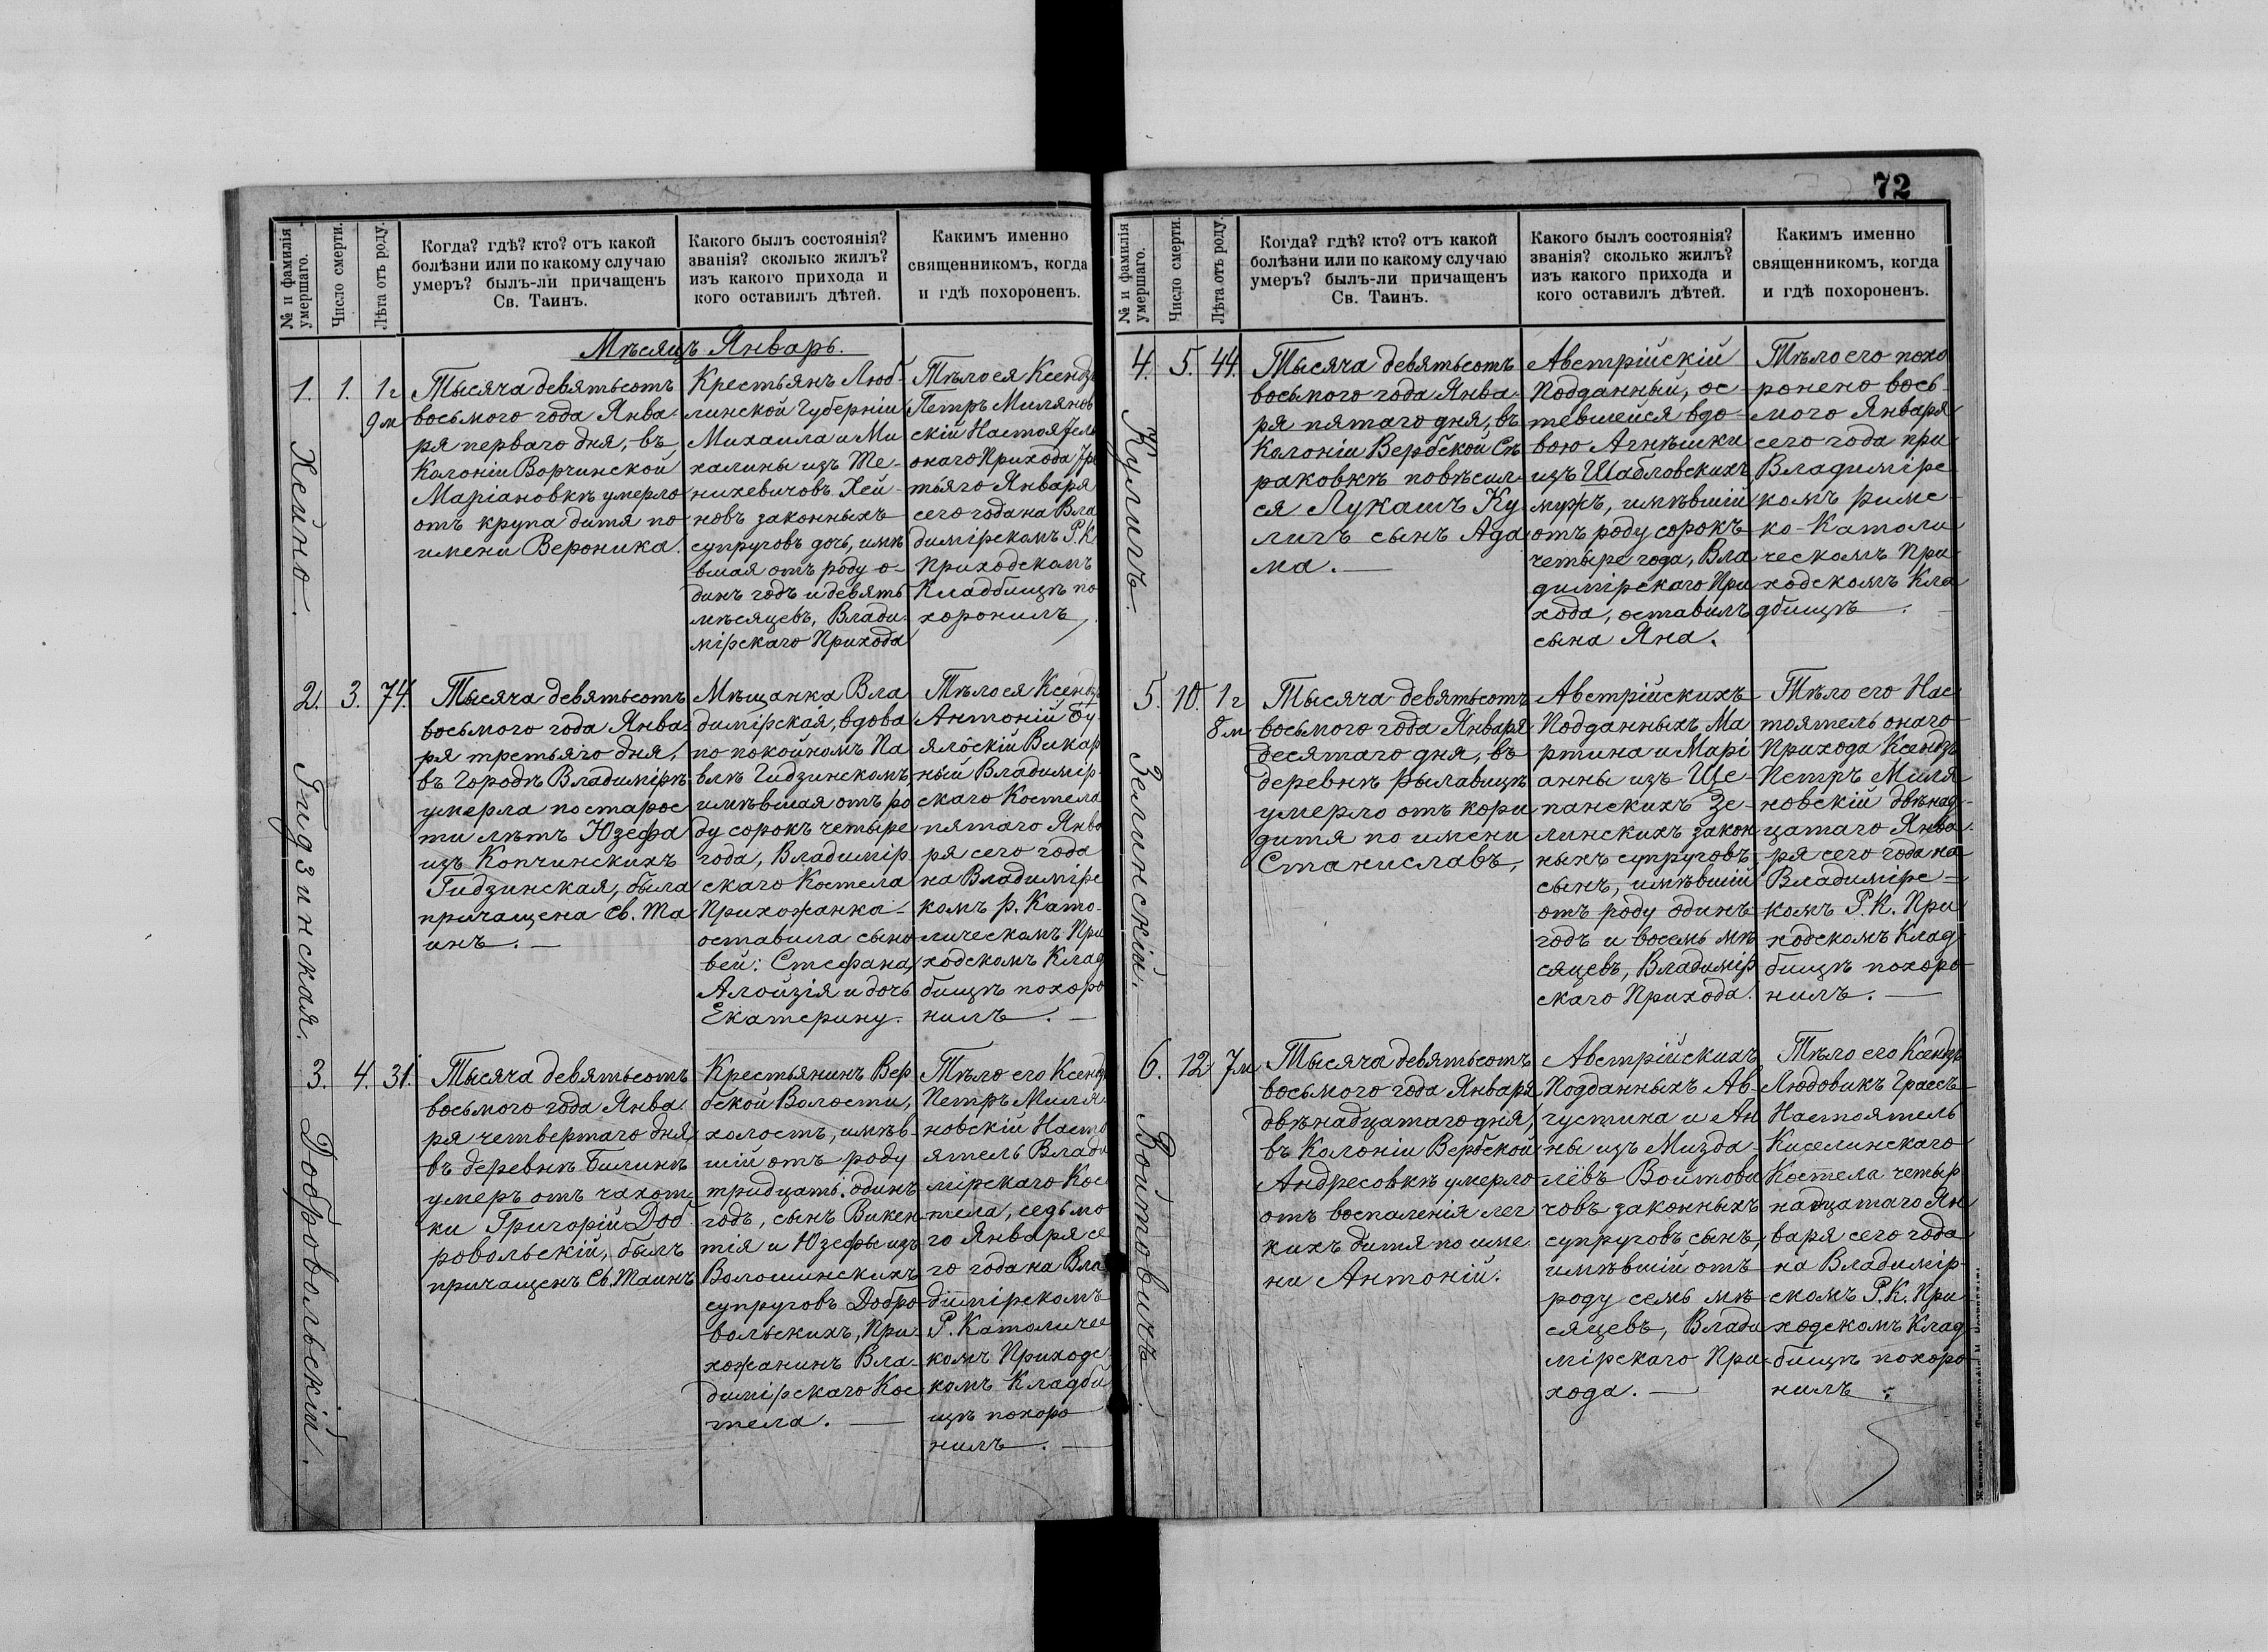 № и фамилія
умершаго.
Число смерти.
Лѣта отъ роду.
Когда? гдѣ? кто? отъ какой
болѣзни или по какому случаю
умеръ? былъ-ли причащенъ
Св. Таинъ.
Какого былъ состоянія?
званія? сколько жилъ?
изъ какого прихода и
кого оставилъ дѣтей.
Какимъ именно
священникомъ, когда
и гдѣ похороненъ.
Мѣсяцъ Январь.
1.
Хейно.
1.
1 г
9 м
Тысяча девятьсотъ
восьмого года Янва
ря перваго дня, въ
Колоніи Ворчинской
Маріановкѣ умерло
отъ крупа дитя по
имени Вероника.
Крестьянъ Люб-
линской Губерніи
Михаила и Ми
халины изъ Те-
нихевичовъ Хей-
новъ законныхъ
супруговъ дочь, имѣ
вшая отъ роду о-
динъ годъ и девять
мѣсяцевъ, Влади-
мірскаго Прихода
Тѣло ея Ксендзъ
Петръ Миляновъ
скій Настоятель
онаго Прихода тре
тьяго Января
сего года на Вла
димірскомъ Р. К.
Приходскомъ
Кладбищѣ по
хоронилъ.
2.
Гидзинская.
3.
74.
Тысяча девятьсотъ
восьмого года Янва
ря третьяго дня,
въ городѣ Владимірѣ
умерла по старос
ти лѣтъ Юзефа
изъ Копчинскихъ
Гидзинская, была
причащена Св. Та
инъ.
Мѣщанка Вла
димірская, вдова
по покойномъ Па
влѣ Гидзинскомъ,
имѣвшая отъ ро
ду сорокъ четыре
года, Владимір
скаго Костела
Прихожанка
оставила сыно
вей: Стефана,
Алойзія и дочь
Екатерину.
Тѣло ея Ксендзъ
Антоній Бу-
ялскій Викар
ный Владимір
скаго Костела
пятаго Янва
ря сего года
на Владимірс
комъ р. Като-
лическомъ При
ходскомъ Клад
бищѣ похоро
нилъ.
3.
Добровольскій.
4.
31.
Тысяча девятьсотъ
восьмого года Янва
ря четвертаго дня,
въ деревнѣ Билинѣ
умеръ отъ чахот
ки Григорій Доб
ровольскій, былъ
причащенъ Св. Таинъ
Крестьянинъ Вер
бской Волости,
холостъ, имѣв-
шій отъ роду
тридцать одинъ
годъ, сынъ Викен-
тія и Юзефы изъ
Волошинскихъ
супруговъ Добро-
вольскихъ, При-
хожанинъ Вла-
димірскаго Кос
тела.
Тѣло его Ксендзъ
Петръ Миля
новскій Насто
ятель Влади
мірскаго Кос
тела, седьмо
го Января се
го года на Вла
димірскомъ
Р. Католичес
комъ Приходс
комъ Кладби
щѣ похоро
нилъ.
72
№ и фамилія
умершаго.
Число смерти.
Лѣта отъ роду.
Когда? гдѣ? кто? отъ какой
болѣзни или по какому случаю
умеръ? былъ-ли причащенъ
Св. Таинъ.
Какого былъ состоянія?
званія? сколько жилъ?
изъ какого прихода и
кого оставилъ дѣтей.
Какимъ именно
священникомъ, когда
и гдѣ похороненъ.
4.
Кулигъ.
5.
44.
Тысяча девятьсотъ
восьмого года Янва-
ря пятаго дня, въ
Колоніи Вербской Съ
раковкѣ повѣсил
ся Лукашъ Ку
лигъ сынъ Ада
ма.
Австрійскій
Подданный, ос-
тевшейся вдо-
вою Агнѣшки
изъ Шабловскихъ
мужъ, имѣвшій
отъ роду сорокъ
четыре года, Вла
димірскаго При
хода, оставилъ
сына Яна.
Тѣло его похо
ронено вось-
мого Января
сего года при
Владимірс
комъ римс-
ко-Католи
ческомъ При
ходскомъ Кла
дбищѣ.
5.
Зелинскій.
10.
1 г
8 м
Тысяча девятьсотъ
восьмого года Января
десятаго дня, въ
деревнѣ Рылавицѣ
умерло отъ кори
дитя по имени
Станиславъ,
Австрійскихъ
Подданныхъ Ма
ртина и Марі
анны изъ Ще-
панскихъ Зе-
линскихъ закон
ныхъ супруговъ
сынъ, имѣвшій
отъ роду одинъ
годъ и восемь мѣ
сяцевъ, Владимір
скаго Прихода.
Тѣло его Нас
тоятель онаго
Прихода Ксендзъ
Петръ Миля
новскій двѣнад-
цатаго Янва-
ря сего года на
Владимірс-
комъ Р. К. При
ходскомъ Клад
бищѣ похоро
нилъ.
6.
Войтовичъ.
12
7 м
Тысяча девятьсотъ
восьмого года Января
двѣнадцатаго дня,
въ Колоніи Вербской
Андресовкѣ умерло
отъ воспаленія лег
кихъ дитя по име
ни Антоній.
Австрійскихъ
Подданныхъ Ав-
густина и Ан
ны изъ Мизда-
лёвъ Войтови
човъ законныхъ
супруговъ сынъ,
имѣвшій отъ
роду семь мѣ-
сяцевъ, Влади
мірскаго При-
хода.
Тѣло его Ксендзъ
Людовикъ Грассъ
Настоятель
Киселинскаго
Костела четыр
надцатаго Ян
варя сего года
на Владимір
скомъ Р. К. При
ходскомъ Клад
бищѣ похоро
нилъ.